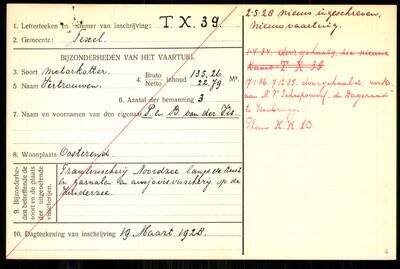 1. Letterteeken en nummer van inschrijving: TX. 39.
2. Gemeente: Texel.
BIJZONDERHEDEN VAN HET VAARTUIG
3. Soort motorkotter
4. Bruto inhoud 135.26 M³.
5. Netto 22.79
5 Naam Vertrouwen.
6. Aantal der bemanning 3
7. Naam en voornamen van den eigenaar P. en B. van der Vis.
8. Woonplaats Oosterend.
9. Bijzonderheden betreffende de soort en de plaats der uitgeoefende visscherijen.
Treilvisscherij Noordzee langs de kust
en garnalen en ansjovisvisscherij op de
Zuiderzee.
10. Dagteekening van inschrijving 19 Maart 1928.
2-5-28 nieuw ingeschreven,
nieuw vaartuig.
doorgehaald,
T X 39
doorgehaald,
aan N.V.
Thans K.K 10.